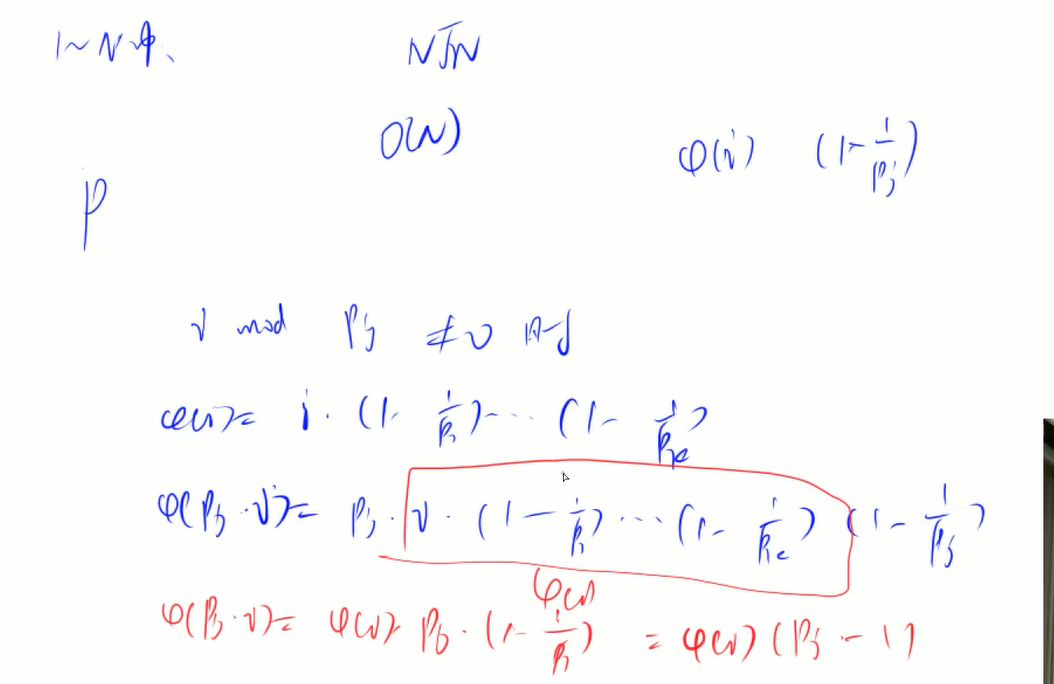 1~N中、 N√N
O(N)
φ(i) (1-1/pj)
P
i mod Pj ≠0 时
φ(i)= i·(1-1/P1)···(1-1/Pk)
φ(Pj·i)= Pj·i·(1-1/P1)···(1-1/Pk)(1-1/Pj)
φ(i)
φ(Pj·i)= φ(i)·Pj·(1-1/Pj) = φ(i)(Pj-1)